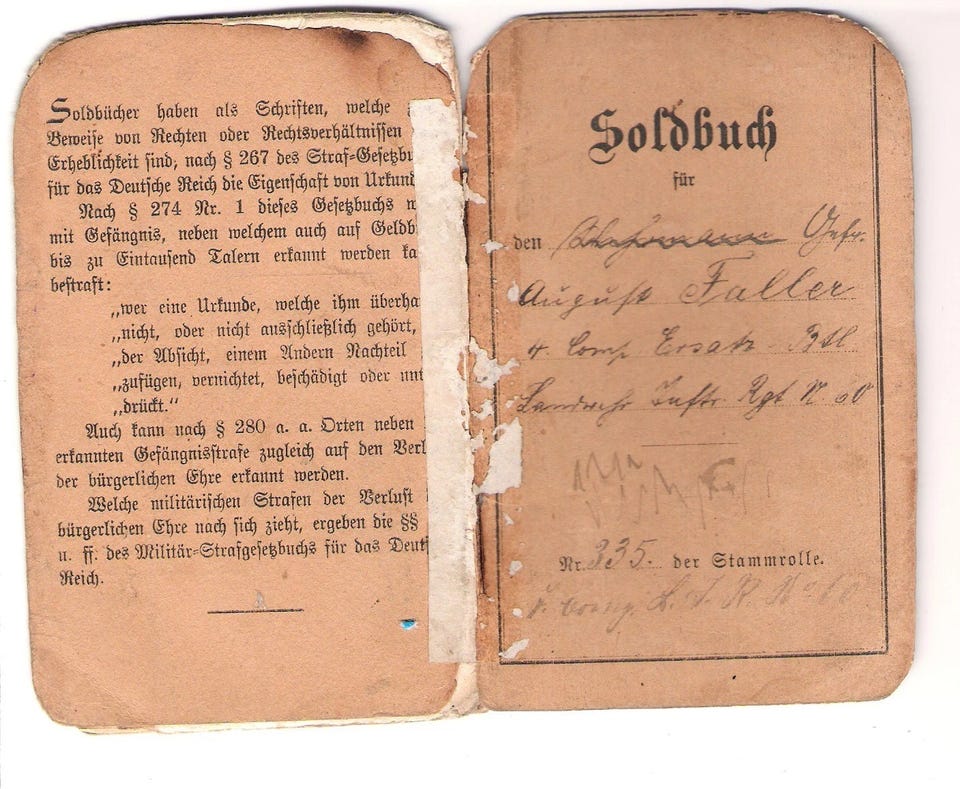 Soldbücher haben als Schriften, welche
Beweise von Rechten oder Rechtsverhältnissen
Erheblichkeit sind, nach § 267 des Straf-Gesetzbu
für das Deutsche Reich die Eigenschaft von Urkund
Nach § 274 Nr. 1 dieses Gesetzbuchs w
mit Gefängnis, neben welchem auch auf Geldb
bis zu Eintausend Talern erkannt werden ka
bestraft:
„wer eine Urkunde, welche ihm überha
„nicht, oder nicht ausschließlich gehört,
„der Absicht, einem Andern Nachteil
„zufügen, vernichtet, beschädigt oder unt
„drückt.“
Auch kann nach § 280 a. a. Orten neben
erkannten Gefängnisstrafe zugleich auf den Verl
der bürgerlichen Ehre erkannt werden.
Welche militärischen Strafen der Verlust
bürgerlichen Ehre nach sich zieht, ergeben die §§
u. ff. des Militär-Strafgesetzbuchs für das Deut
Reich.
Soldbuch
für
den Gefr.
August Faller
4 Comp. Ersatz-Btl
Landwehr Inftr Rgt N. 60
Nr. 335. der Stammrolle.
L. I. R. No 60